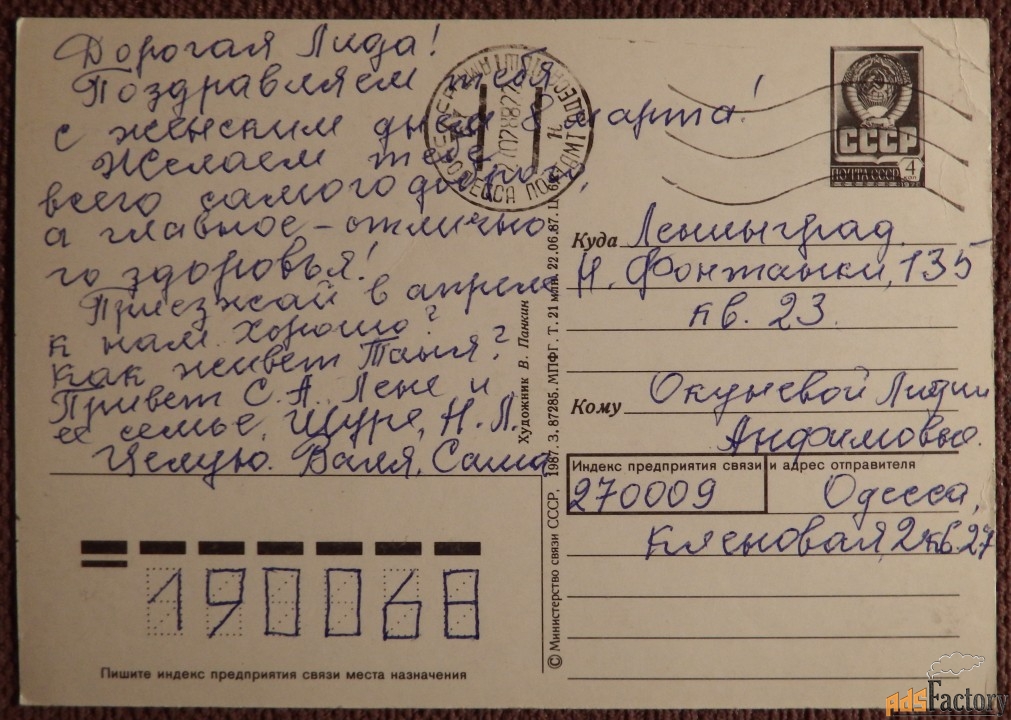 Дорогая Лида!
Поздравляем тебя
с женским днём 8 марта!
Желаем тебе
всего самого доброго,
а главное – отлично
го здоровья!
Приезжай в апреле
к нам. Хорошо?
Как живет Таня?
Привет С.А., Лене и
ее семье, Шуре, Н.Л.
Целую. Валя, Саша
СССР
4
ПОЧТА СССР
ОДЕССА
Куда Ленинград
Н. Фонтанки, 135
кв. 23.
Кому Окуневой Лидии
Анфимовне.
Индекс предприятия связи и адрес отправителя
270009 Одесса,
Кленовая, 2 кв. 27
Художник В. Панкин
© Министерство связи СССР. 1987. З. 87285. МПФГ. Т. 21 млн. 22.06.87. Ц.
190068
Пишите индекс предприятия связи места назначения
AdsFactory